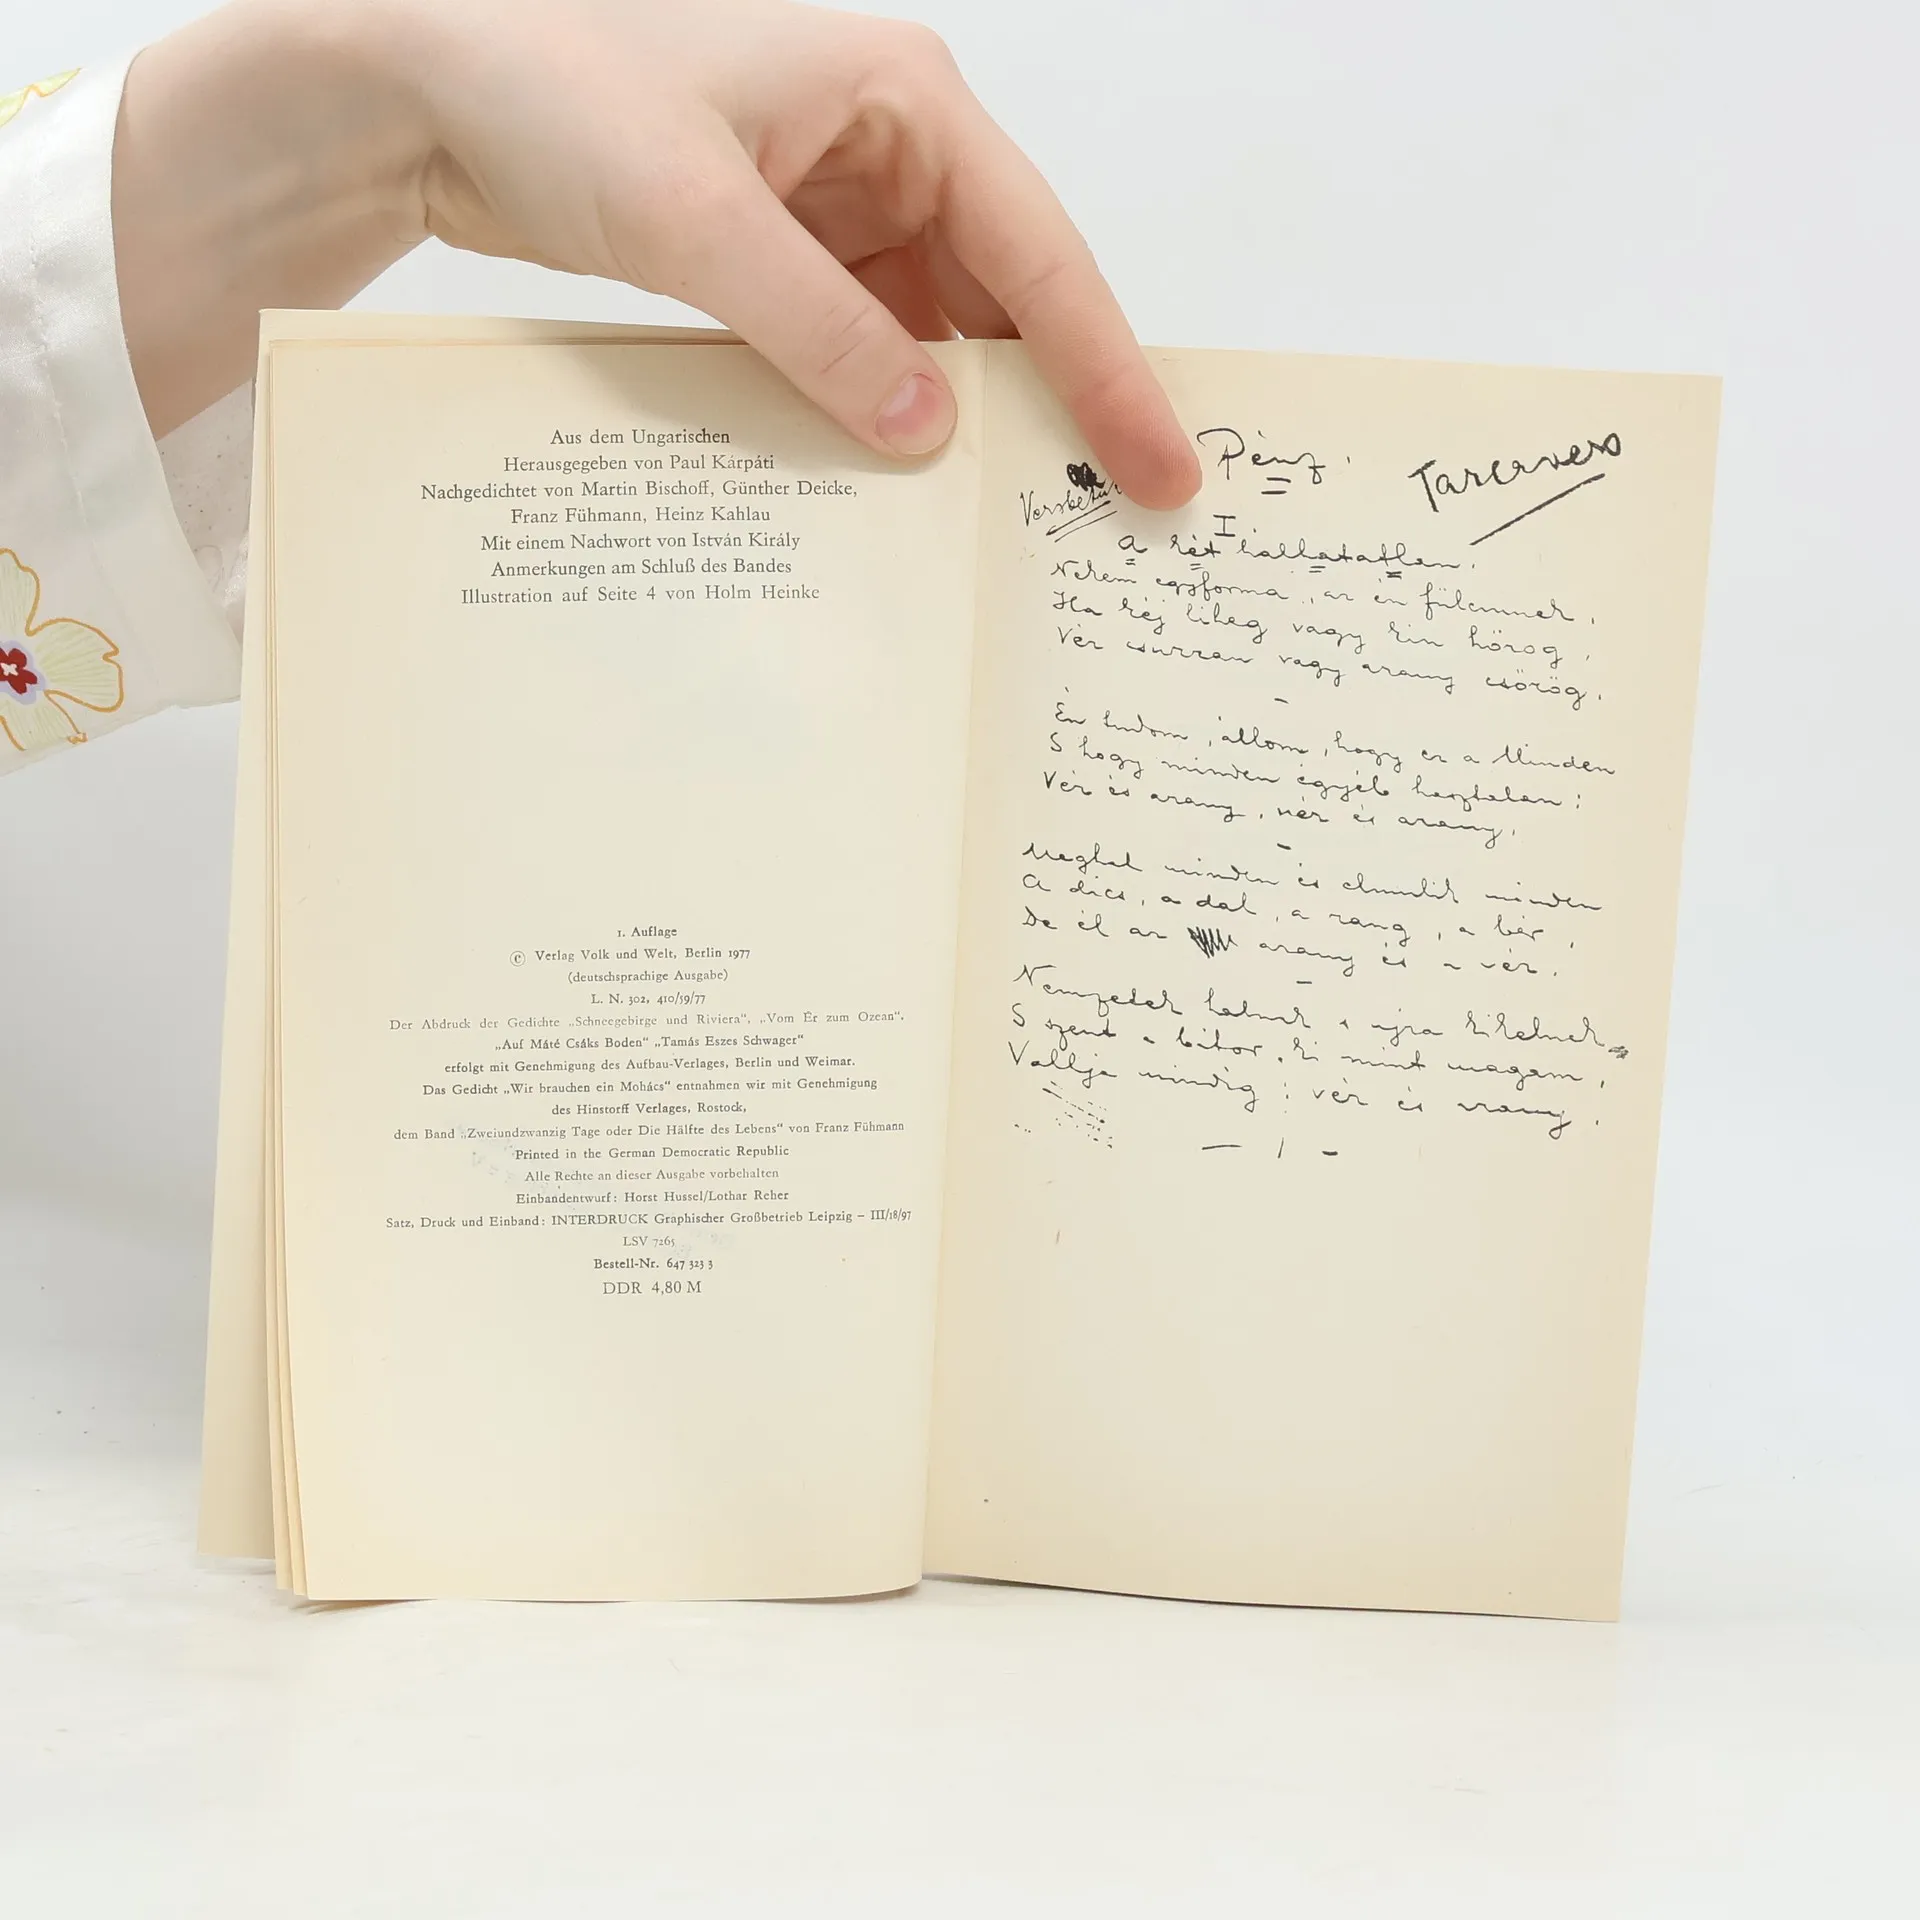 Aus dem Ungarischen
Herausgegeben von Paul Kárpáti
Nachgedichtet von Martin Bischoff, Günther Deicke,
Franz Fühmann, Heinz Kahlau
Mit einem Nachwort von István Király
Anmerkungen am Schluß des Bandes
Illustration auf Seite 4 von Holm Heinke
1. Auflage
© Verlag Volk und Welt, Berlin 1977
(deutschsprachige Ausgabe)
L. N. 302, 410/59/77
Der Abdruck der Gedichte „Schneegebirge und Riviera", „Vom Ér zum Ozean",
„Auf Máté Csáks Boden" „Tamás Eszes Schwager"
erfolgt mit Genehmigung des Aufbau-Verlages, Berlin und Weimar.
Das Gedicht „Wir brauchen ein Mohács" entnahmen wir mit Genehmigung
des Hinstorff Verlages, Rostock,
dem Band „Zweiundzwanzig Tage oder Die Hälfte des Lebens" von Franz Fühmann
Printed in the German Democratic Republic
Alle Rechte an dieser Ausgabe vorbehalten
Einbandentwurf: Horst Hussel/Lothar Reher
Satz, Druck und Einband: INTERDRUCK Graphischer Großbetrieb Leipzig – III/18/97
LSV 7265
Bestell-Nr. 647 323 3
DDR 4,80 M
Pénz.
Tarcavers
I
A két halhatatlan.
Nekem egyforma, az én fülemnek,
Ha kéj liheg vagy kin hörög,
Vér csurran vagy arany csörög.
Én tudom, állom, hogy ez a Minden
S hogy minden egyéb hasztalan:
Vér és arany, vér és arany.
Meghal minden és elmulik minden
A dics, a dal, a rang, a bér,
De él az arany és a vér.
Nemzetek halnak s ujra kikelnek
S szent a bátor, ki mint magam,
Vallja mindig: vér és arany.